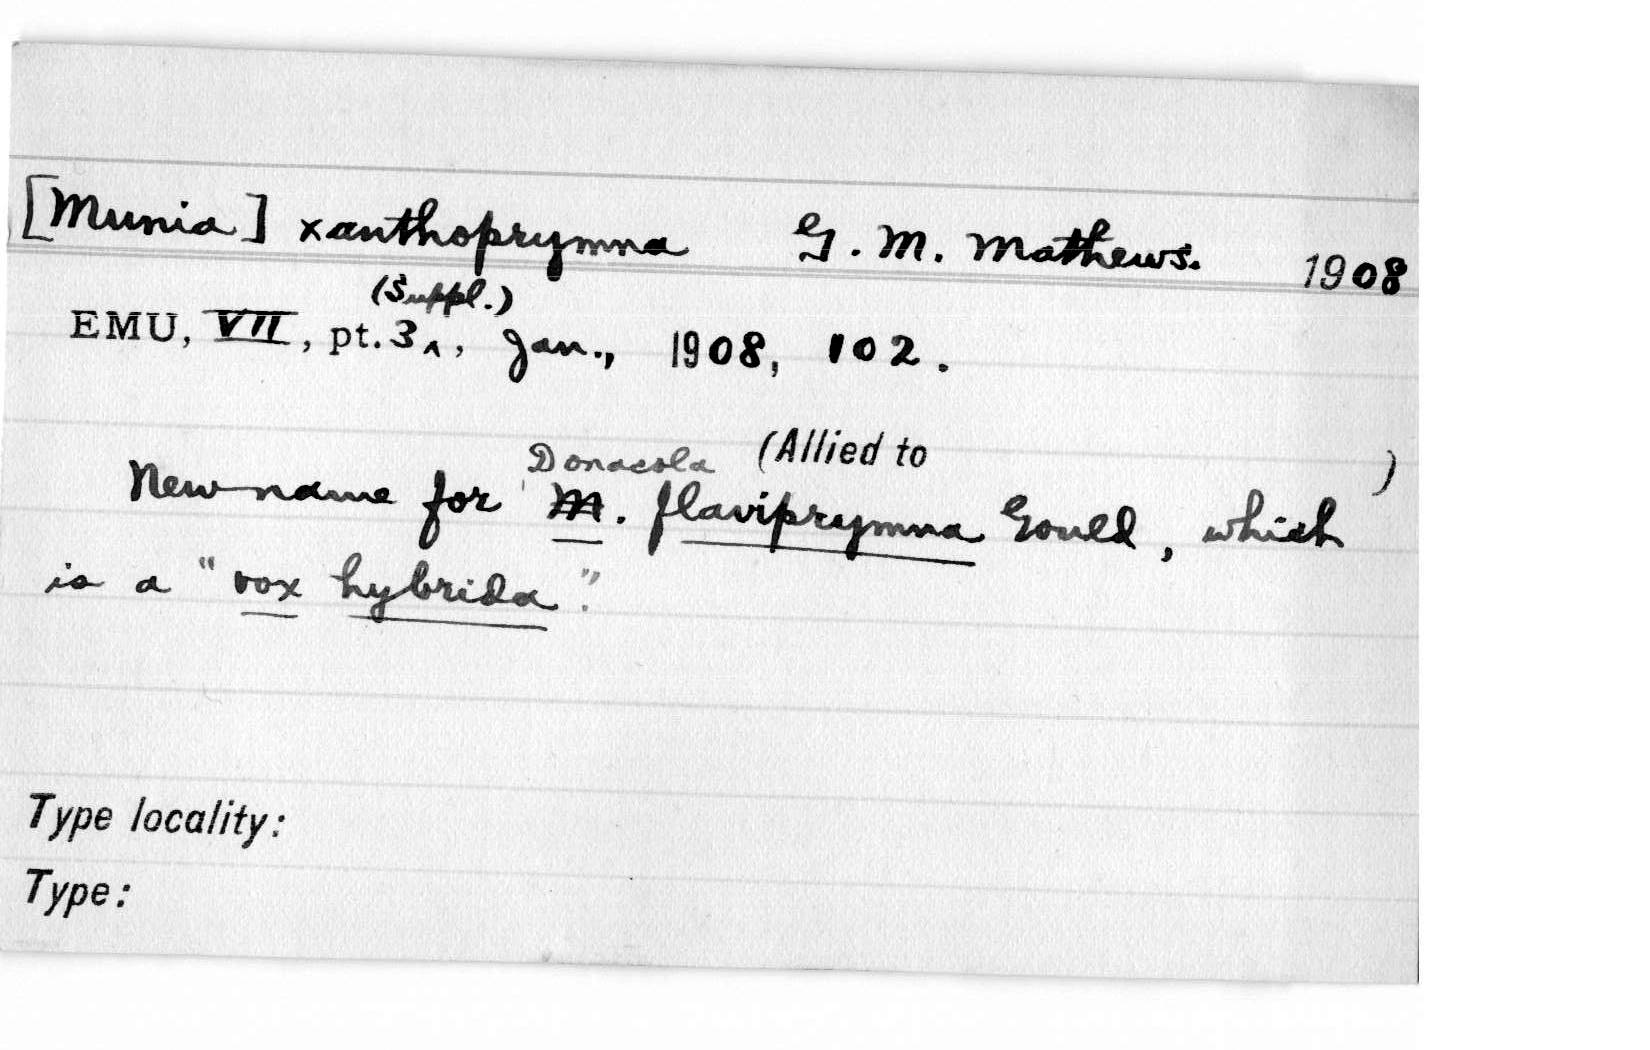 [Munia] xanthoprymna G. M. Mathews. 1908
(Suppl.)
EMU, VII, pt. 3 ^, Jan., 1908, 102.
Donacola (Allied to )
New name for M. flaviprymna Gould, which
is a "vox hybrida".
Type locality:
Type: